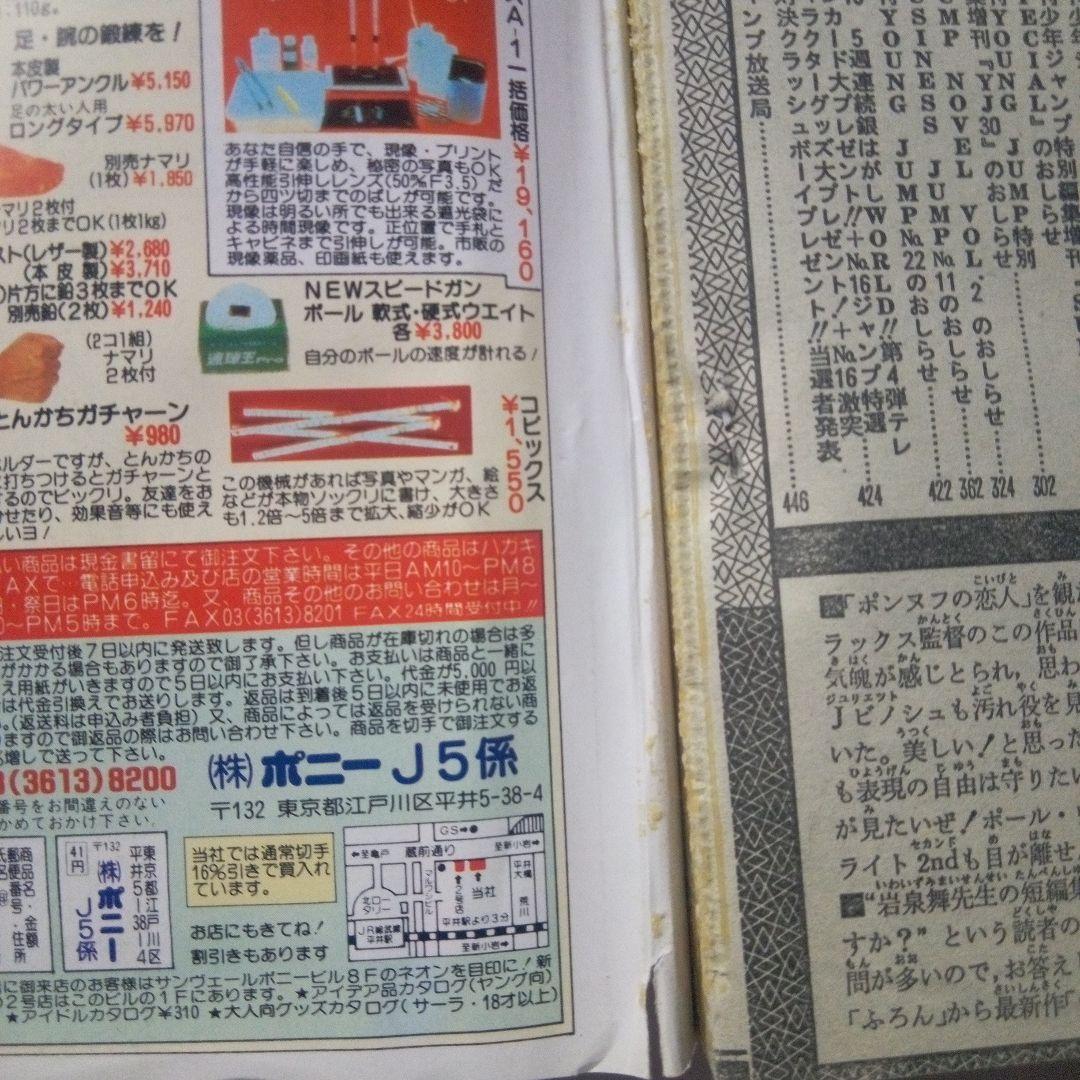 110g.
足・腕の鍛練を!
本皮製
パワーアンクル¥5,150
足の太い人用
ロングタイプ¥5,970
別売ナマリ
(1枚)¥1,850
マリ2枚付
リ2枚までOK(1枚1kg)
スト(レザー製)¥2,680
(本皮製)¥3,710
)片方に鉛3枚までOK
別売鉛(2枚)¥1,240
(2コ1組)
ナマリ
2枚付
とんかちガチャーン
¥980
ホルダーですが、とんかちの
に打ちつけるとガチャーンと
するのでビックリ。友達をお
かせたり、効果音等にも使え
しいヨ!
XA-1一括価格¥19,160
あなた自信の手で、現像・プリント
が手軽に楽しめ、秘密の写真もOK
高性能引伸しレンズ(50%F3.5)だ
から四ツ切までのばしが可能です。
現像は明るい所でも出来る遮光袋に
よる時間現像です。正位置で手札と
キャビネまで引伸しが可能。市販の
現像薬品、印画紙も使えます。
NEWスピードガン
ボール 軟式・硬式ウエイト
各¥3,800
自分のボールの速度が計れる!
速球王
コピックス
¥1,550
この機械があれば写真やマンガ、絵
などが本物ソックリに書け、大きさ
も1.2倍〜5倍まで拡大、縮少がOK
い商品は現金書留にて御注文下さい。その他の商品はハカキ
AXで…電話申込み及び店の営業時間は平日AM10〜PM8
・祭日はPM6時迄。又、商品その他のお問い合わせは月〜
0〜PM5時まで。FAX03(3613)8201 FAX24時間受付中!!
注文受付後7日以内に発送致します。但し商品が在庫切れの場合は多
がかかる場合もありますので御了承下さい。お支払いは商品と一緒に
え用紙がいきますので5日以内にお支払い下さい。代金が5,000円以
は代金引換えでお送りします。返品は到着後5日以内に未使用でお返
。(返送料は申込み者負担)又、商品によっては返品を受けられない商
ますので御返品の際はお問い合わせ下さい。商品を切手で御注文する
増しで送って下さい。
3(3613)8200
番号をお間違えのない
かめておかけ下さい。
(株)ポニーJ5係
〒132 東京都江戸川区平井5-38-4
41円
〒132
東京都江戸川区
平井5-38-4
(株)ポニー
J5係
商品名
郵便番号・金額
当社では通常切手
16%引きで買入れ
ています。
お店にもきてね!
割引きもあります
GS→●
←至亀戸 蔵前通り 至新小岩→
マルフジビル
2号店
当社
平井大橋
荒川
ロータリー
平井駅より3分
JR総武線
平井駅
至新小岩→
に御来店のお客様はサンヴェールポニービル8Fのネオンを目印に!新
の2号店はこのビルの1Fにあります。★アイデア品カタログ(ヤング向)
★アイドルカタログ¥310 ★大人向グッズカタログ(サーラ・18才以上)
少年ジャンプ特別編集増刊
PECIAL』のおしらせ 302
YOUNG JUMP特別
増刊『YJ30』のおしらせ 324
UMP NOVEL VOL.2のおしらせ 362
SINESS JUMP No.11のおしらせ 422
YOUNG JUMP No.22のおしらせ
5週連続銀はがしWORLD!!第4弾テレ
カード大プレゼント!!+No.16ジャンプ特選 424
ラクターグッズ大プレゼント!+No.16激突
対決クラッシュボーイプレゼント!!当選者発表
ンプ放送局 446
「ポンヌフの恋人」を観
ラックス監督のこの作品
気魄が感じとられ，思わ
Jビノシュも汚れ役を見
いた。美しい！と思った
も表現の自由は守りたい
が見たいぜ！ポール・
ライト2ndも目が離せ
“岩泉舞先生の短編集
すか？”という読者の
問が多いので，お答え
「ふろん」から最新作「